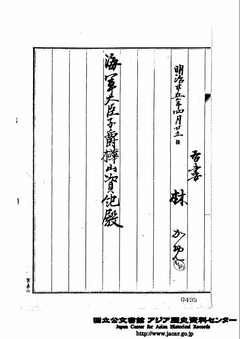 明治廿五年四月廿五日
林
海軍大臣子爵樺山資紀殿
0495
国立公文書館 アジア歴史資料センター
Japan Center for Asian Historical Records
http://www.jacar.go.jp